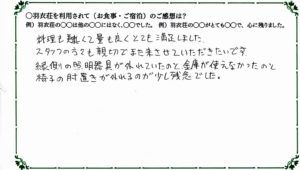 ○羽衣荘を利用されて（お食事・ご宿泊）のご感想は？
例）羽衣荘の○○は他の○○にはなく、○○でした。 例）羽衣荘の○○がとても○○で、心に残りました。
料理も美しくて量も良くとても満足しました
スタッフの方々も親切でまた来させていただきたいです
縁側の照明器具が外れていたのと金庫が使えなかったのと
椅子の肘置きが外れるのが少し残念でした。